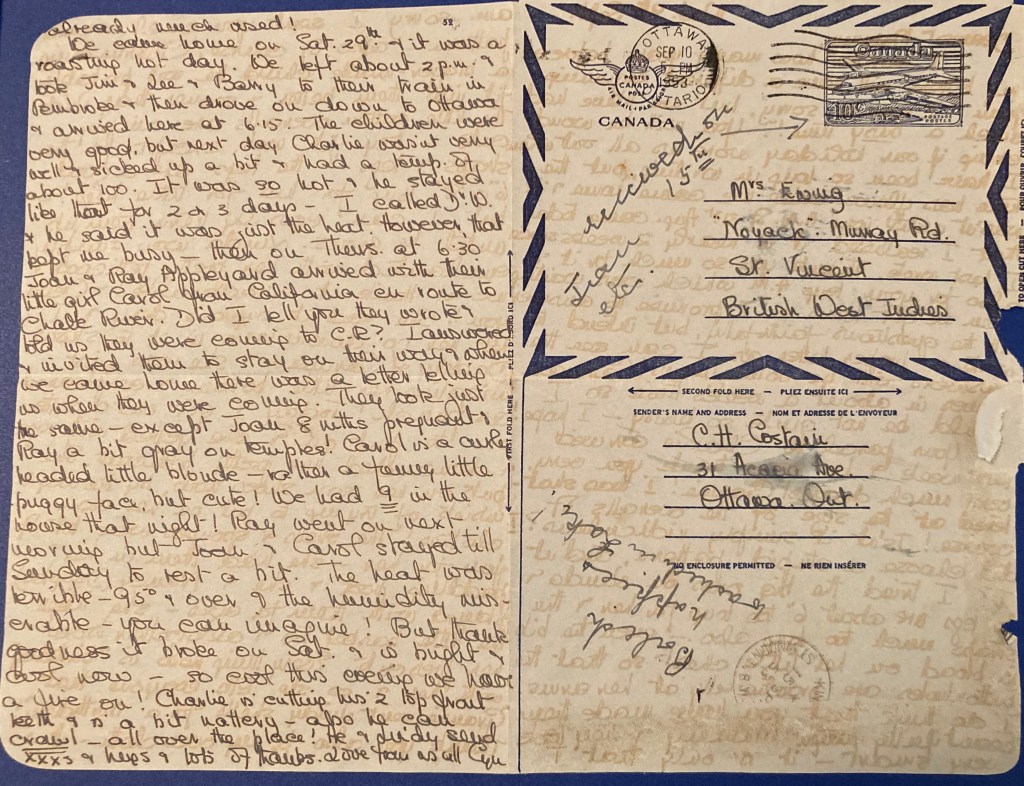 already much used!
52
We came home on Sat. 29th & it was a
roasting hot day. We left about 2 p.m. &
took Jim & Lee & Barry to their train in
Pembroke & then drove on down to Ottawa
& arrived here at 6.15. The children were
very good, but next day Charlie wasn't very
well & sicked up a bit & had a temp. of
about 100. It was so hot & he stayed
like that for 2 or 3 days - I called Dr. D.
& he said it was just the heat. However, that
kept me busy - then on Thurs. at 6:30
Joan & Ray Appleyard arrived with their
little girl Carol from California en route to
Chalk River. Did I tell you they wrote &
told us they were coming to C.R? I answered
& invited them to stay on their way & when
we came home there was a letter telling
us when they were coming. They look just
the same - except Joan 8 mths pregnant &
Ray a bit gray on temples! Carol is a curly
headed little blonde - rather a funny little
puggy face, but cute! We had 9 in the
house that night! Ray went on next
morning but Joan & Carol stayed till
Sunday to rest a bit. The heat was
terrible - 95° & over & the humidity mis-
erable - you can imagine! But thank
goodness it broke on Sat. & is bright &
cool now - so cool this evening we have
a fire on! Charlie is cutting his 2 top front
teeth & is a bit nattery - also he can
crawl - all over the place! He & Judy send
xxxs & hugs & lots of thanks. Love from us all Cyn
FIRST FOLD HERE — PLIEZ D'ABORD ICI
OTTAWA
SEP 10
PM
ONTARIO
POSTES CANADA POST
AIR MAIL • PAR AVION
CANADA
Canada
10¢
POSTAGE POSTES
received on
15th
etc.
Mrs Ewing
"Noyack" Murray Rd.
St. Vincent
British West Indies
TO OPEN CUT HERE — POUR OUVRIR COUPEZ
SECOND FOLD HERE — PLIEZ ENSUITE ICI
SENDER'S NAME AND ADDRESS — NOM ET ADRESSE DE L'ENVOYEUR
C.H. Costain
31 Acacia Ave.
Ottawa. Ont.
NO ENCLOSURE PERMITTED — NE RIEN INSÉRER
happies